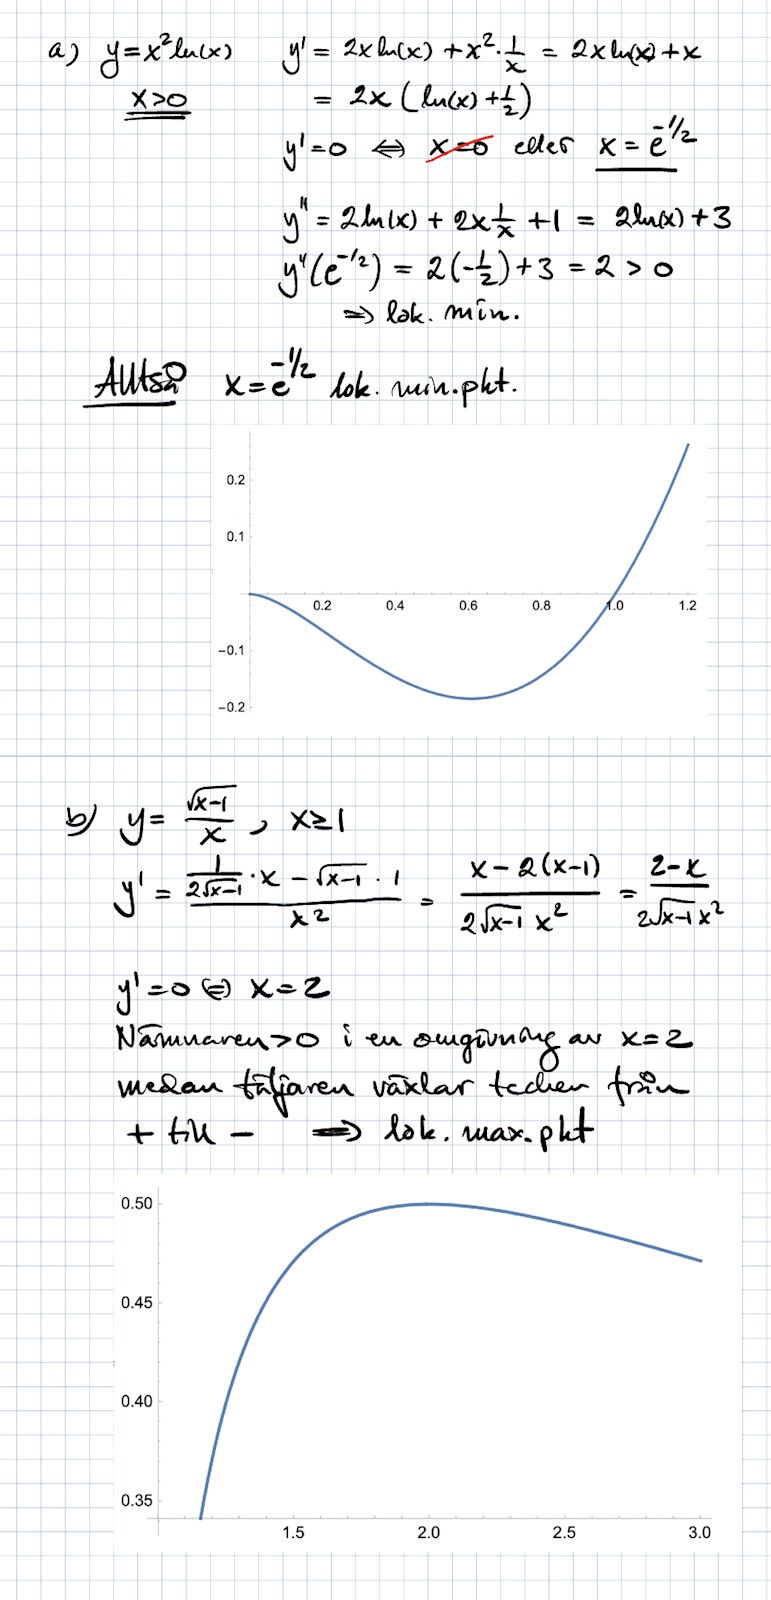 a) y = x² ln(x)   y' = 2x ln(x) + x² · 1/x = 2x ln(x) + x
x>0   = 2x (ln(x) + 1/2)
y' = 0 ⇔ x=0 eller x = e^{-1/2}
y'' = 2 ln(x) + 2x 1/x + 1 = 2 ln(x) + 3
y''(e^{-1/2}) = 2(-1/2) + 3 = 2 > 0
⇒ lok. min.
Alltså x = e^{-1/2} lok. min.pkt.
0.2
0.1
0.2 0.4 0.6 0.8 1.0 1.2
−0.1
−0.2
b) y = √(x-1) / x , x ≥ 1
y' = (1/(2√(x-1)) · x − √(x-1) · 1) / x² = (x − 2(x-1)) / (2√(x-1) x²) = (2-x) / (2√(x-1) x²)
y' = 0 ⇔ x = 2
Nämnaren > 0 i en omgivning av x = 2
medan täljaren växlar tecken från
+ till − ⇒ lok. max. pkt
0.50
0.45
0.40
0.35
1.5 2.0 2.5 3.0